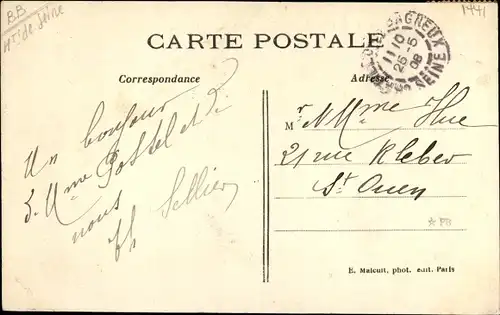 BB
Hts de Seine
1441
CARTE POSTALE
BAGNEUX
11 10
25-5
08
SEINE
Correspondance
Adresse
Un bonjour
Mme Postel et
nous
Sellier
Mr Mme Hue
21 rue Kleber
St Ouen
FB
E. Malcuit, phot. edit. Paris